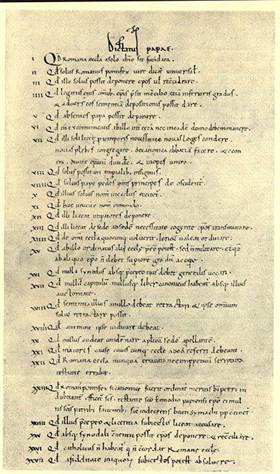 Dictatus papae.
I Qd Romana eccla a solo dno sit fundata.
II Qd solus Romanus pontifex iure dicat universal
III Qd ille solus possit deponere epos ut reconciliare
IIII Qd legatus eius omib, epis psit in concilio etiā inferioris gradus
& adversus eos sententiā depositionis possit dare.
V Qd absentes papa possit deponere.
VI Qd cū excommunicatis ab illo inter cetera nec in eadē domo debemus manere.
VII Qd illi soli licet pro temporis necessitate novas leges condere
novas plebes congregare. de canonica abbatiā facere. & e contra
divite epatū dividere & inopes unire.
VIII Qd solus possit uti imperialib, insigniis.
VIIII Qd solius papae pedes omnes principes deosculentur.
X Qd illius solius nomen in ecclis recitetur.
XI Qd hoc unicū est nomen in mundo.
XII Qd illi liceat imperatores deponere.
XIII Qd illi liceat de sede ad sedē necessitate cogente epos transmutare.
XIIII Qd de omi eccla quocunq, voluerit clericū valeat ordinare.
XV Qd ab illo ordinatus alii eccle preesse potest sed
ab aliquo epo n debet superiorē gradū accipe.
XVI Qd nulla synodus absq, precepto eius debet generalis vocari.
XVII Qd nullū capitulū nullusq, liber canonicus habeatur absq, illius
auctoritate.
XVIII Qd sententia illius a nullo debeat retractari & ipse omniū
solus retractare possit.
XVIIII Qd a nemine ipse iudicari debeat.
XX Qd nullus audeat condemnare aplicā sedē apellantē.
XXI Qd maiores cause cuiuscunq, eccle ad eā referri debeant.
XXII Qd Romana eccla nunquā erravit nec imppetuū scriptura
testante errabit.
XXIII Qd Romanus pontifex si canonice fuerit ordinatus meritis b petri in-
dubitanter efficitur scs. testante sco Ennodio papiensi epo ei mul-
tis scis patribus faventib, sic in decretis beati symachi pp cnetur
XXIIII Qd illius precepto & licentia subiectis liceat accusare.
XXV Qd absq, synodali conventu possit epos deponere & reconciliare.
XXVI Qd catholicus n habeatur qui n concordat Romane eccle
XXVII Qd a fidelitate iniquorū subiectos potest absolvere.